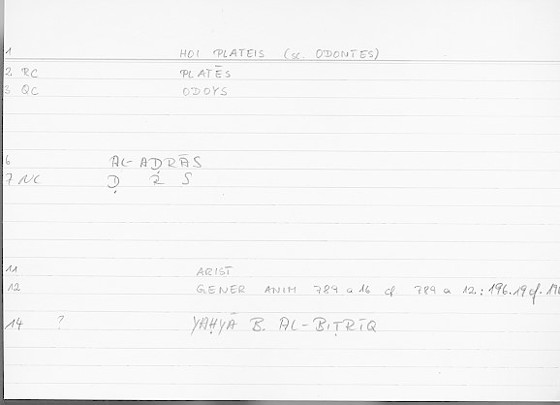 1 HOI PLATEIS (sc. ODONTES)
2 RC PLATĒS
3 QC ODOYS
6 AL-AḌRĀS
7 NC Ḍ R S
11 ARIST
12 GENER ANIM 789 a 16 cf 789 a 12: 196.19 cf.
14 ? YAḤYĀ B. AL-BIṬRĪQ